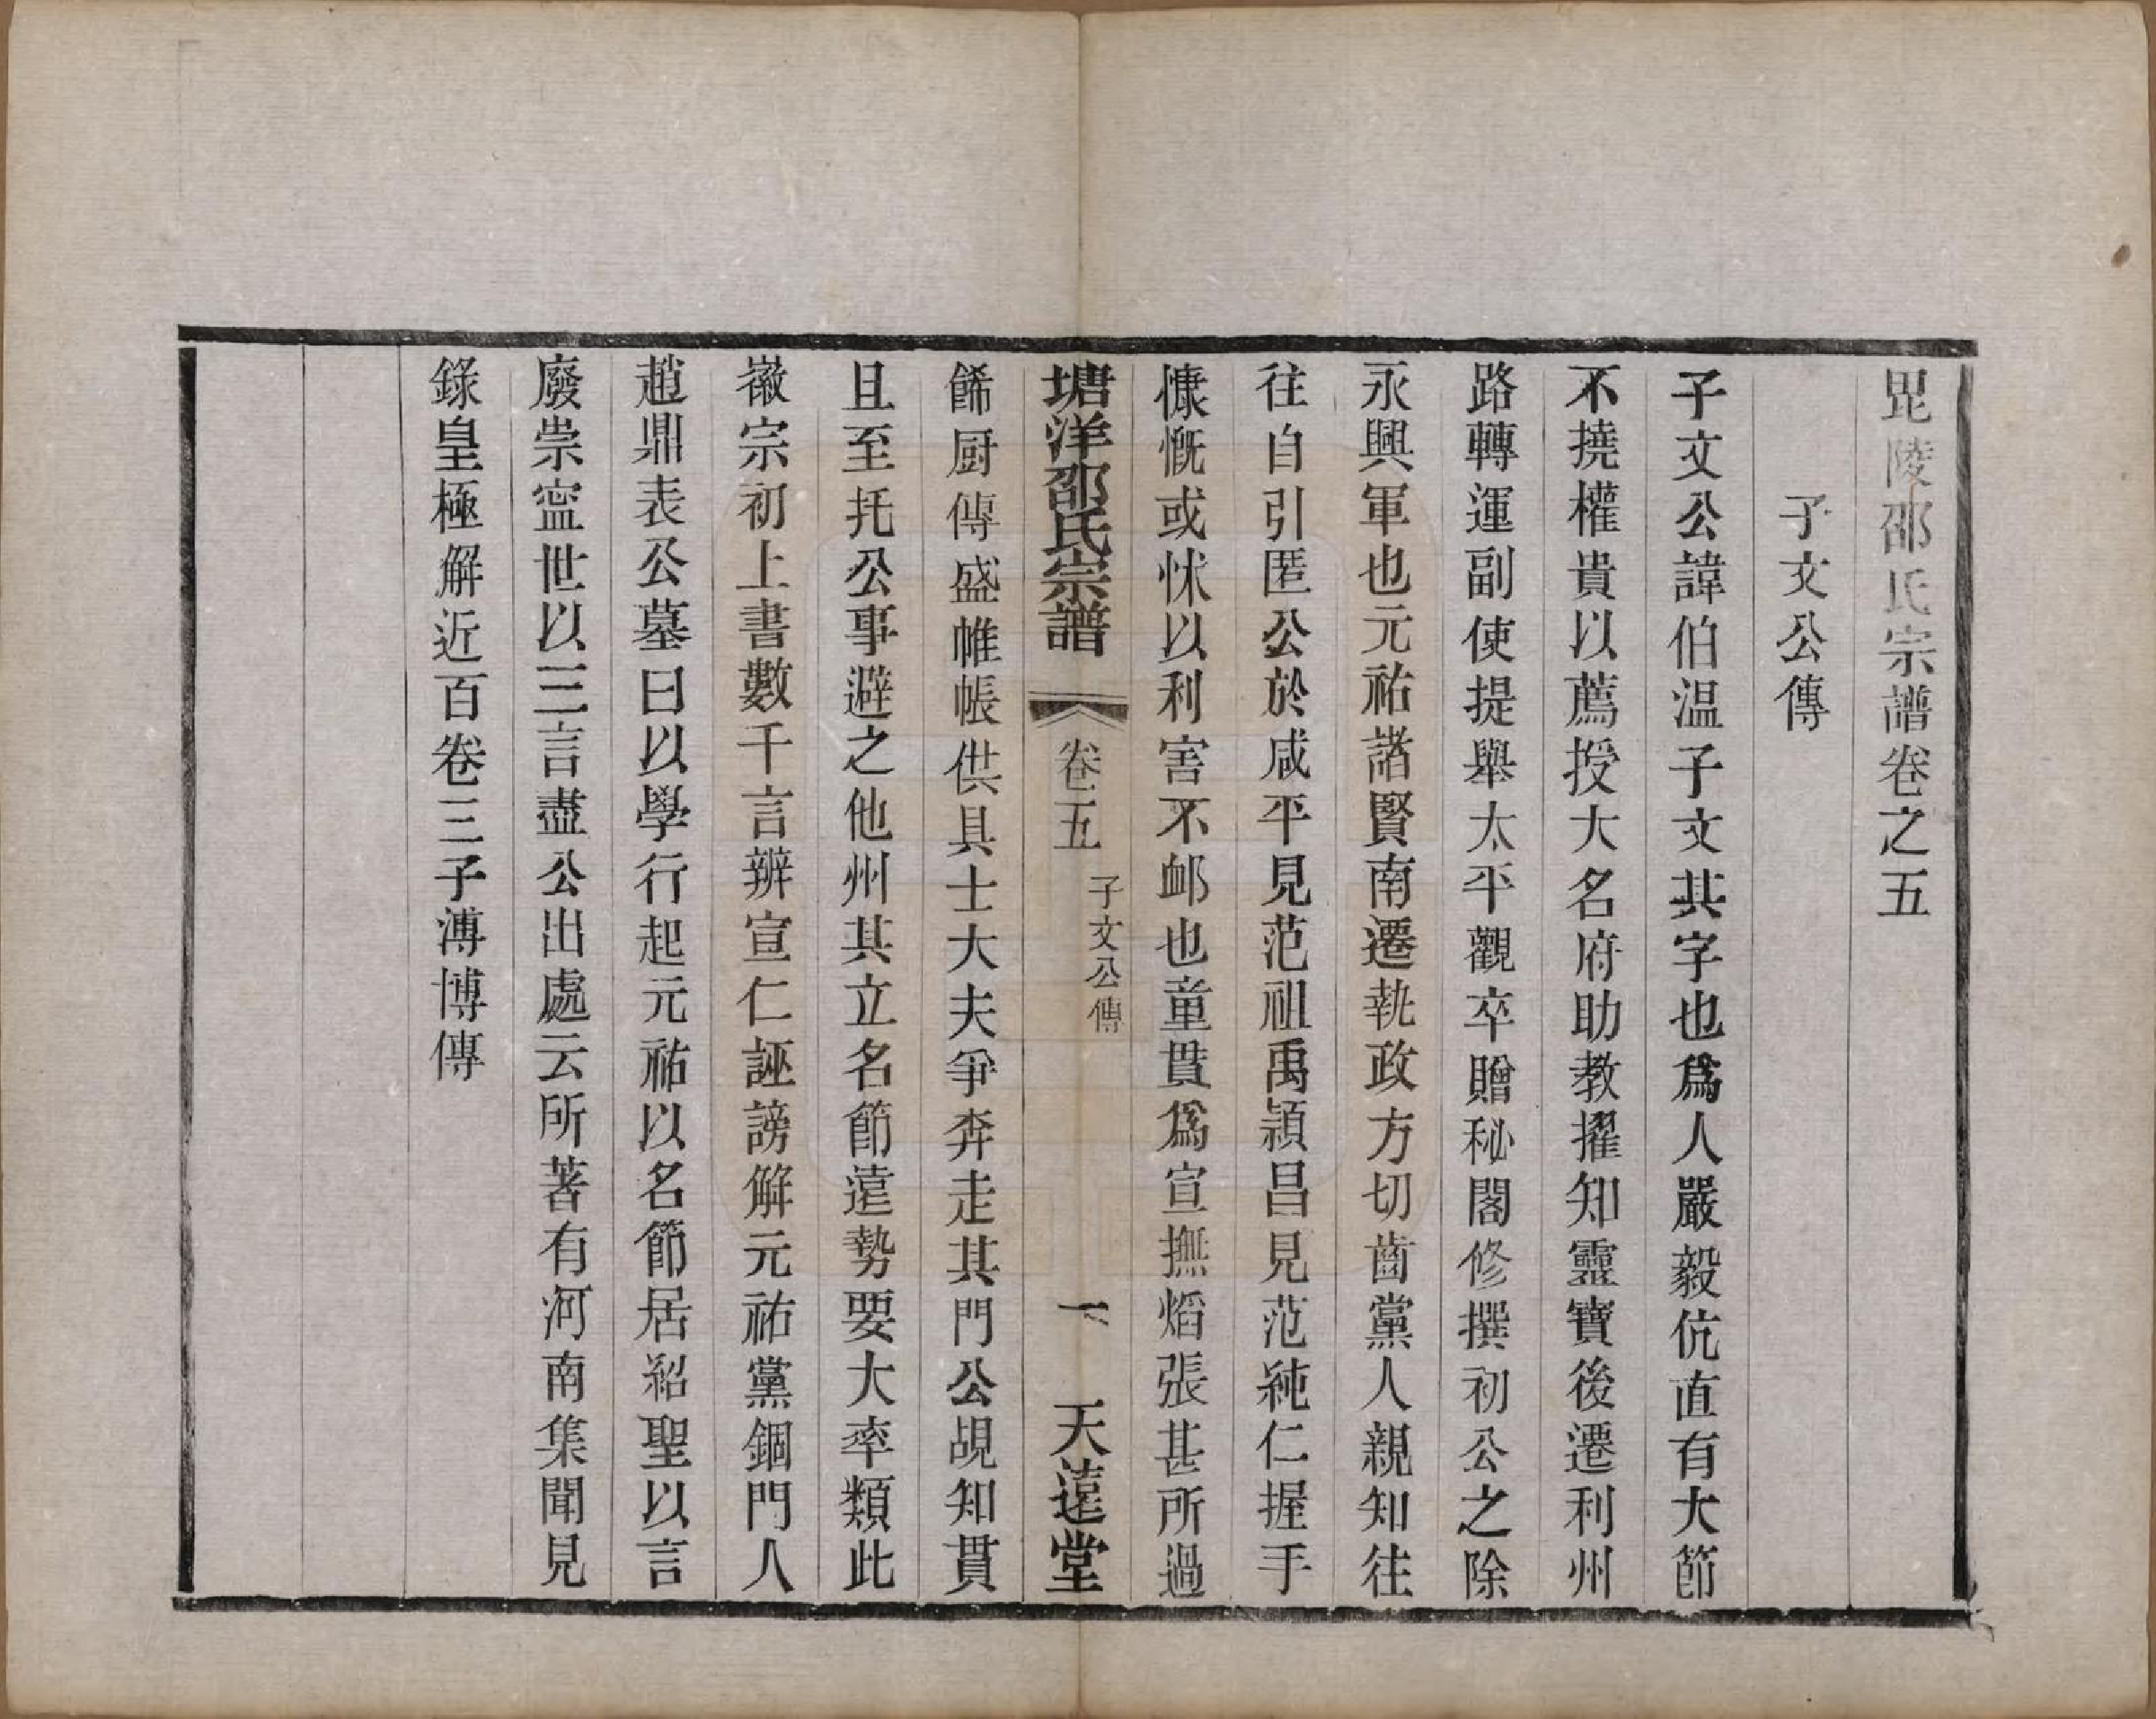 毘陵邵氏宗譜卷之五
子文公傳
子文公諱伯温子文其字也爲人嚴毅伉直有大節
不撓權貴以薦授大名府助教擢知靈寶後遷利州
路轉運副使提舉太平觀卒贈秘閣修撰初公之除
永興軍也元祐諸賢南遷執政方切齒黨人親知往
往自引匿公於咸平見范祖禹潁昌見范純仁握手
慷慨或怵以利害不邮也童貫爲宣撫熖張甚所過
塘洋邵氏宗譜
卷五
子文公傳
一
天遠堂
餙厨傳盛帷帳供具士大夫爭奔走其門公覘知貫
且至托公事避之他州其立名節遠勢要大率類此
徽宗初上書數千言辨宣仁誣謗解元祐黨錮門人
趙鼎表公墓曰以學行起元祐以名節居紹聖以言
廢崇寍世以三言盡公出處云所著有河南集聞見
錄皇極解近百卷三子溥博傳